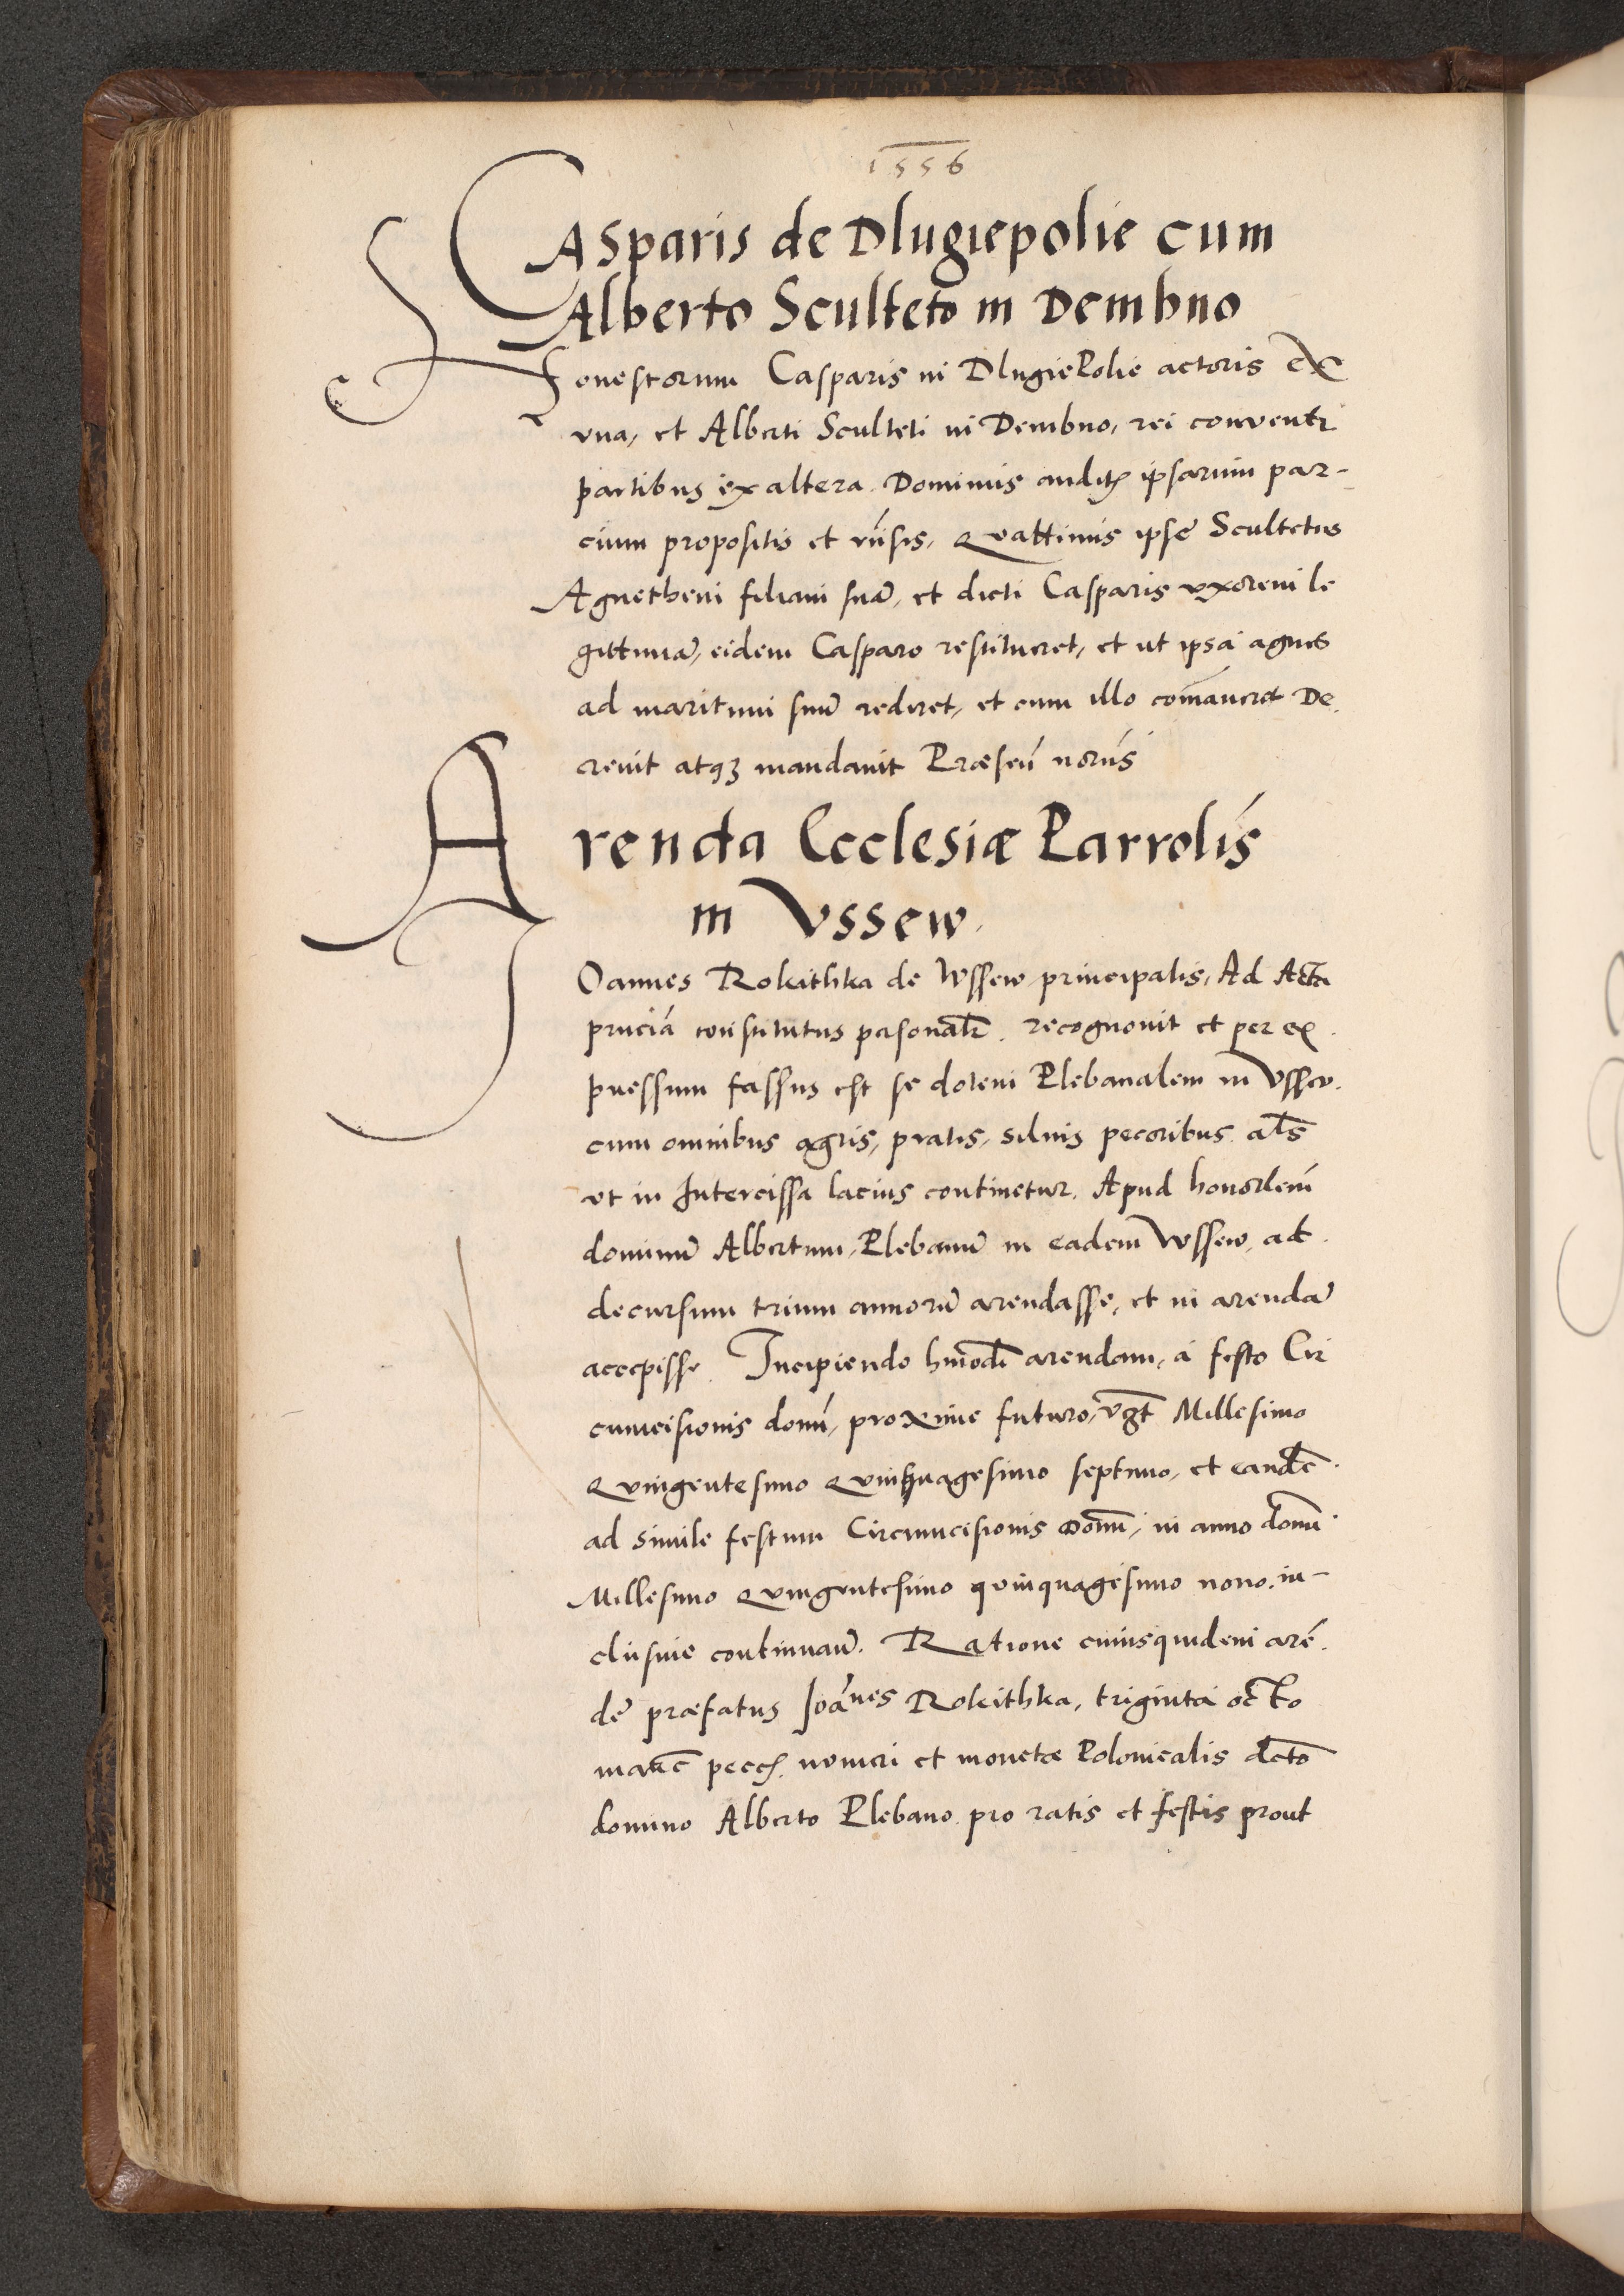 1556
CAsparis de Dlugiepolie cum
Alberto Sculteto in Dembno
Honestorum Casparis in DlugiePolie actoris ex
vna, et Alberti Sculteti in Dembno, rei conventi
partibus ex altera. Dominus auditis ipsarum par-
cium propositis et rńsis, Quattinus ipse Scultetus
Agnethem filiam suā, et dicti Casparis vxorem le
gittimā, eidem Casparo restitueret, et ut ipsa agnes
ad maritum suū rediret, et cum illo com̄aneret De
crevit atq3 mandavit Præseń norḿs
Arenda Ecclesiæ Parrolís
in Vssew.
JOannes Rokithka de Wssew principalis, Ad Acta
pńciā constitutus personalr̄. recognovit et per ex
pressum fassus est se dotem Plebanalem in Vssew.
cum omnibus agris, pratis, siluis pecoribus al̄s
vt in Intercissa lacius continetur. Apud honorlem̄
dominū Albertum, Plebanū in eadem Wssew, ad
decursum trium annorū arendasse, et in arendā
accepisse. Incipiendo hmōdi arendam, a festo Cir
cumcisionis domī, proxime futuro, vḡt Millesimo
Quingentesimo Quinquagesimo septimo, et eandē
ad simile festum Circumcisionis Domī, in anno domī
Millesimo Quingentesimo quinquagesimo nono. in-
clusiue continuań. Ratione cuiusquidem arē
dē præfatus Joānes Rokithka, triginta octo
marc̄ pecc. numeri et monetæ Polonicalis dcto
domino Alberto Plebano pro ratis et festis prout